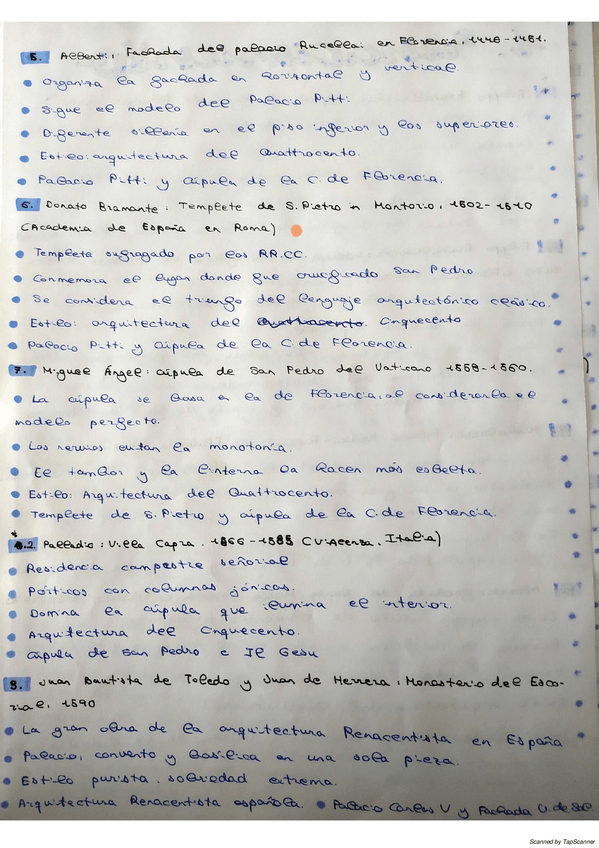 5. Alberti: Fachada del palacio Rucellai en Florencia. 1446-1451.
• Organiza la fachada en horizontal y vertical.
• Sigue el modelo del Palacio Pitti.
• Diferente sillería en el piso inferior y los superiores.
• Estilo: arquitectura del Quattrocento.
• Palacio Pitti y cúpula de la C. de Florencia.
6. Donato Bramante: Templete de S. Pietro in Montorio. 1502-1510
(Academia de España en Roma)
• Templete sufragado por los RR.CC.
• Conmemora el lugar donde fue crucificado San Pedro.
• Se considera el triunfo del lenguaje arquitectónico clásico.
• Estilo: arquitectura del Quattrocento. Cinquecento
• Palacio Pitti y cúpula de la C. de Florencia.
7. Miguel Ángel: cúpula de San Pedro del Vaticano 1558-1560.
• La cúpula se basa en la de Florencia, al considerarla el
modelo perfecto.
• Los nervios evitan la monotonía.
• El tambor y la linterna la hacen más esbelta.
• Estilo: Arquitectura del Quattrocento.
• Templete de S. Pietro y cúpula de la C. de Florencia.
8.2. Palladio: Villa Capra. 1566-1585 (Vicenza. Italia)
• Residencia campestre señorial
• Pórticos con columnas jónicas.
• Domina la cúpula que ilumina el interior.
• Arquitectura del Cinquecento.
• Cúpula de San Pedro e Il Gesu
9. Juan Bautista de Toledo y Juan de Herrera: Monasterio del Esco-
rial. 1590
• La gran obra de la arquitectura Renacentista en España
• Palacio, convento y basílica en una sola pieza.
• Estilo purista. sobriedad extrema.
• Arquitectura Renacentista española. • Palacio Carlos V y Fachada U. de Sal
Scanned by TapScanner